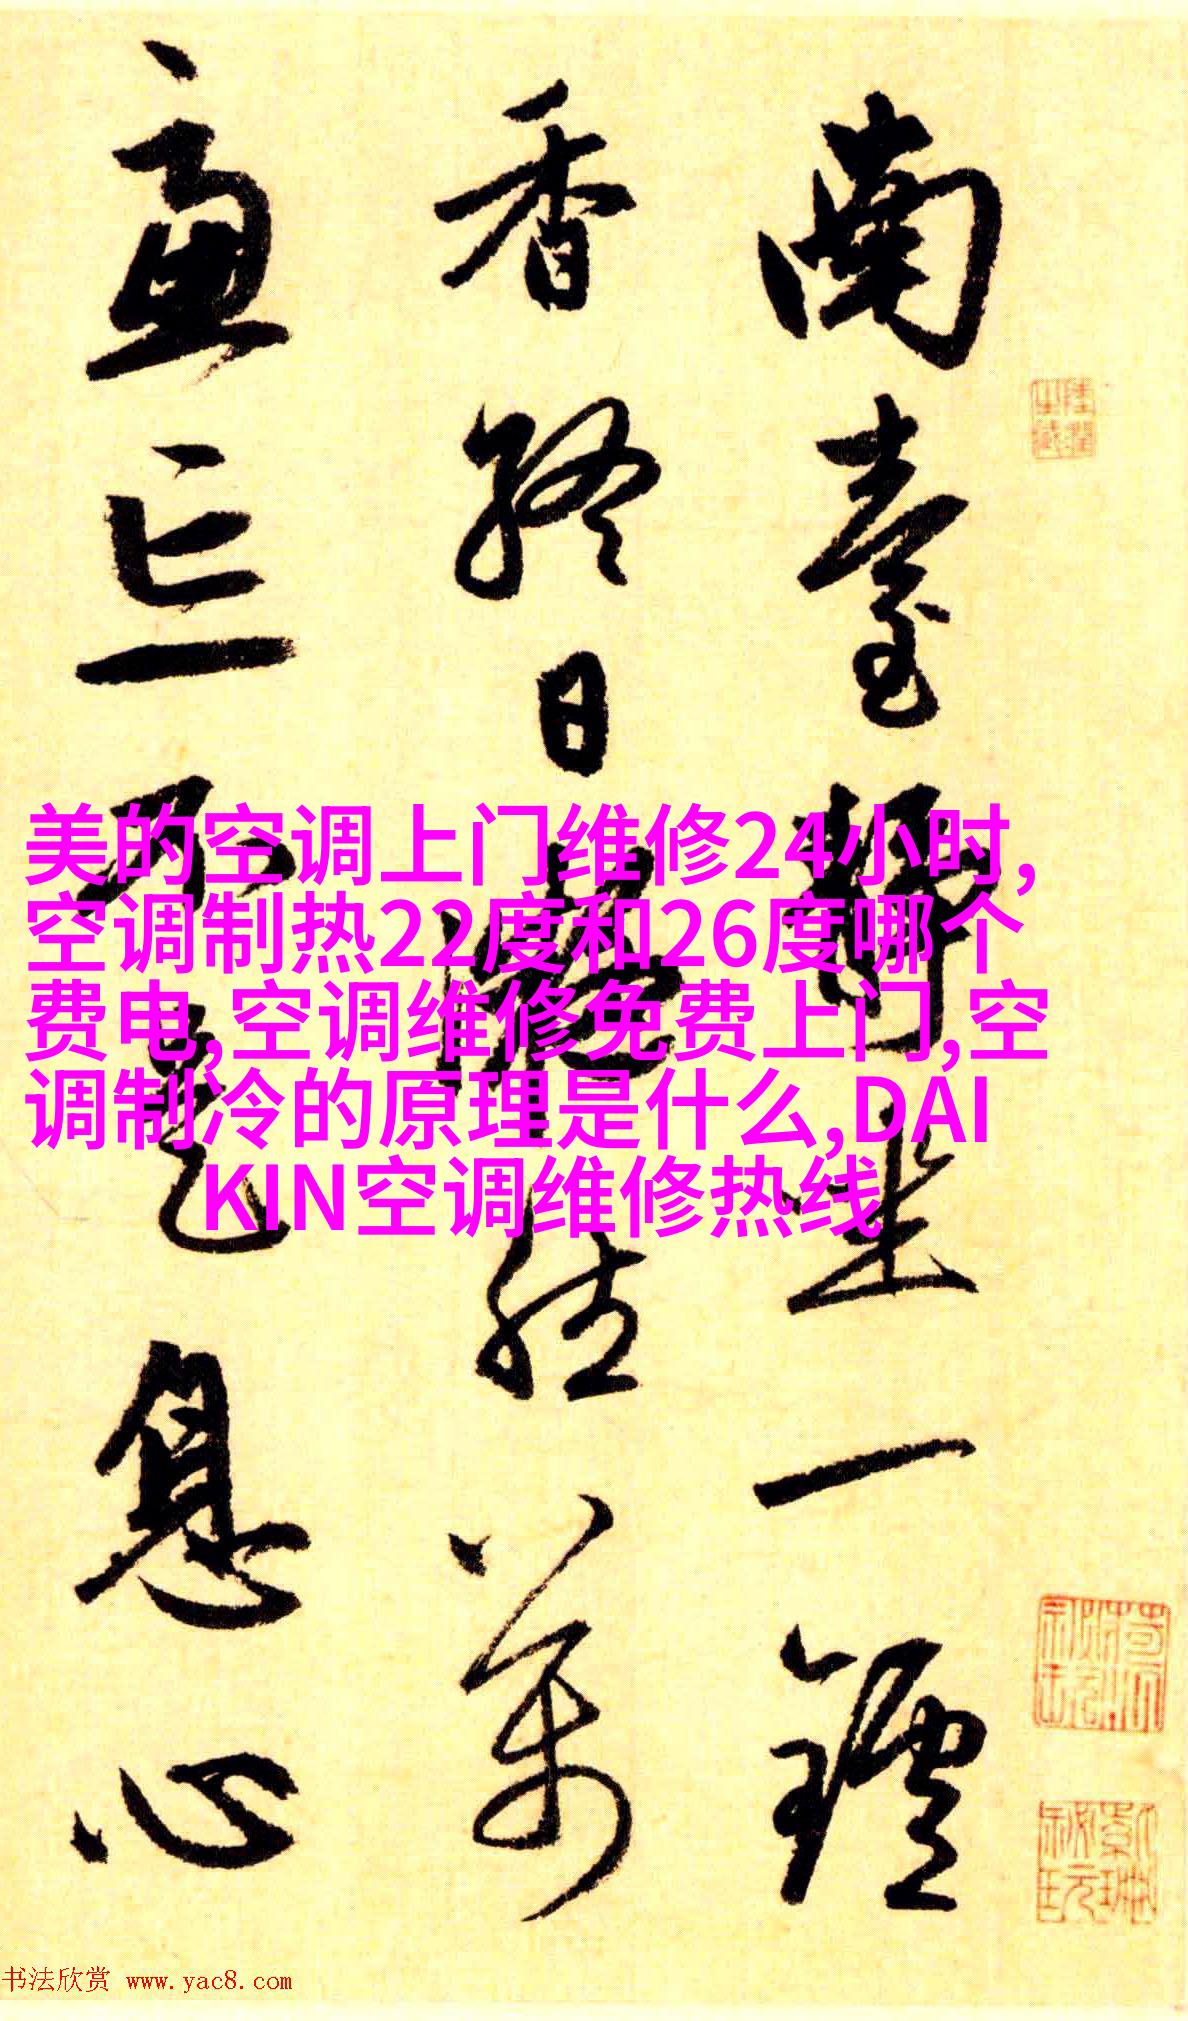 南臺靜坐一鑪
香終日凝然萬
慮亡不是息心
美的空调上门维修24小时,
空调制热22度和26度哪个
费电,空调维修免费上门,空
调制冷的原理是什么,DAI
KIN空调维修热线
书法欣赏 www.yac8.com